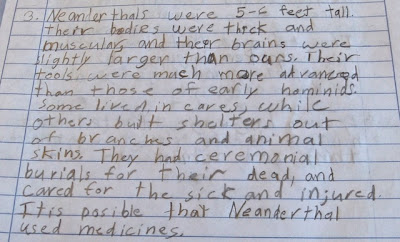 3. Neanderthals were 5-6 feet tall.
their bodies were thick and
muscular, and their brains were
slightly larger than ours. Their
tools were much more advanced
than those of early hominids.
Some lived in caves, while
others built shelters out
of branches and animal
skins. They had ceremonial
burials for their dead, and
cared for the sick and injured.
It is posible that Neanderthal
used medicines.